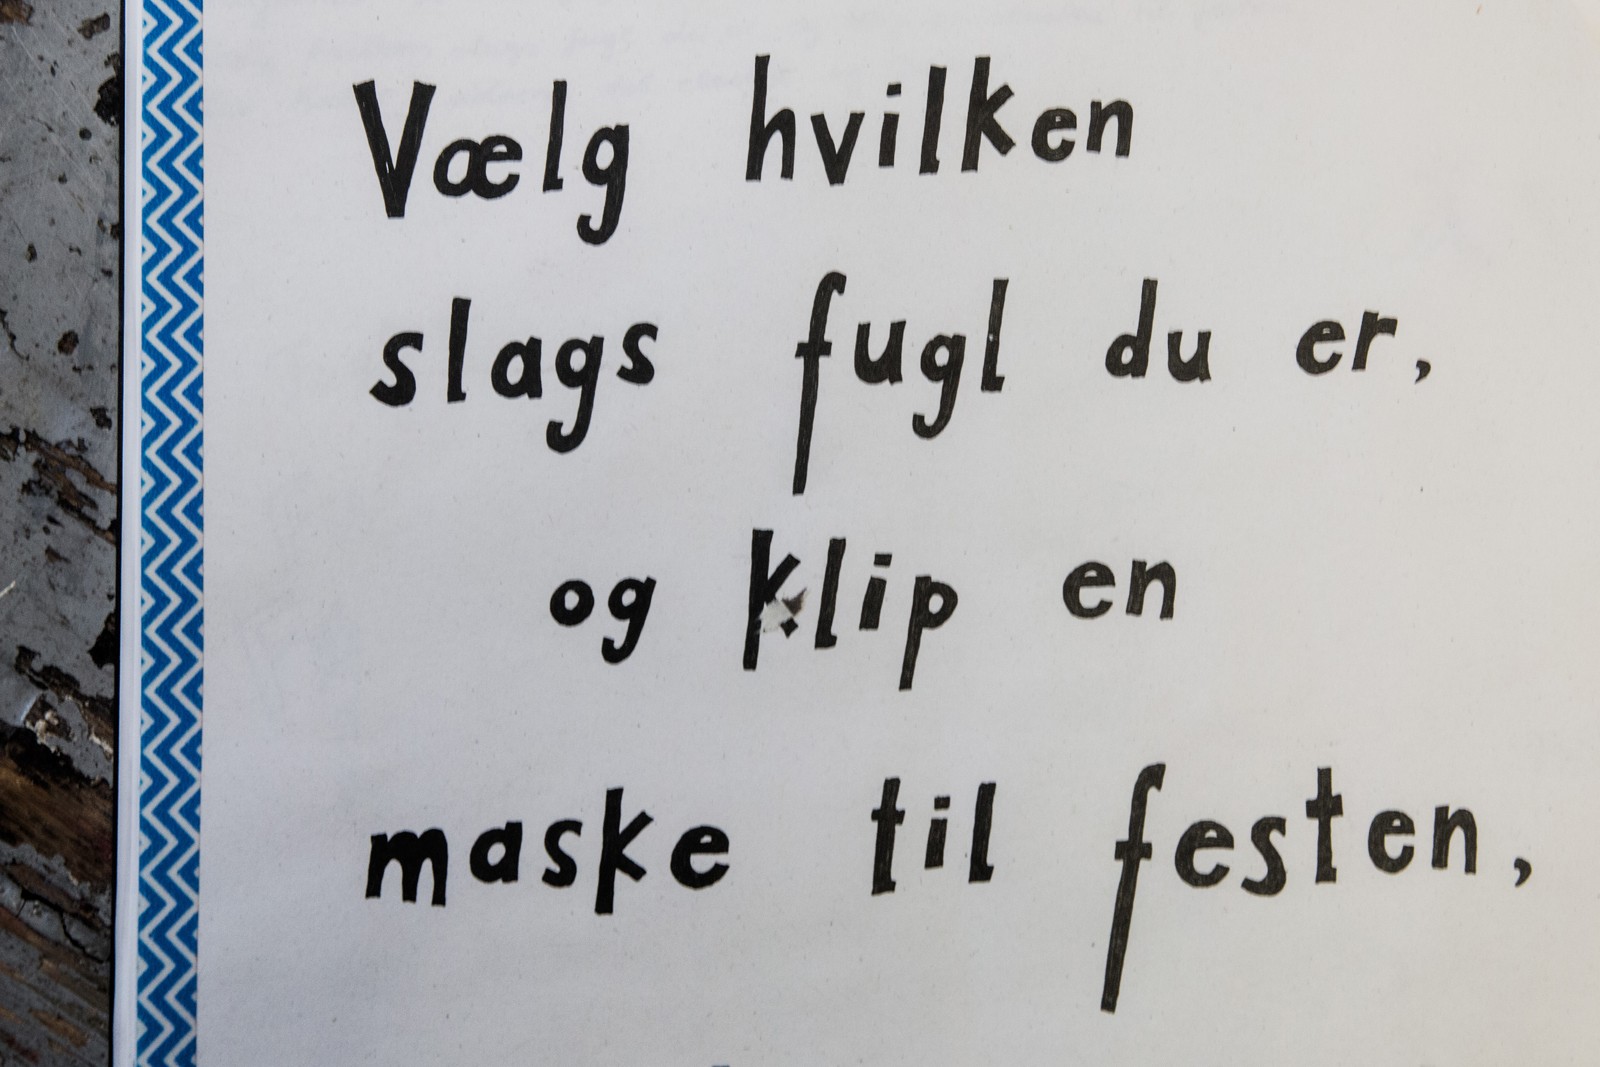 Vælg hvilken
slags fugl du er,
og klip en
maske til festen,